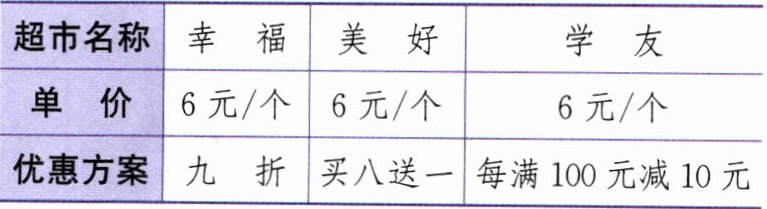 超市名称 幸福 美好 学友
单价 6元/个 6元/个 6元/个
优惠方案 九折 买八送一 每满100元减10元